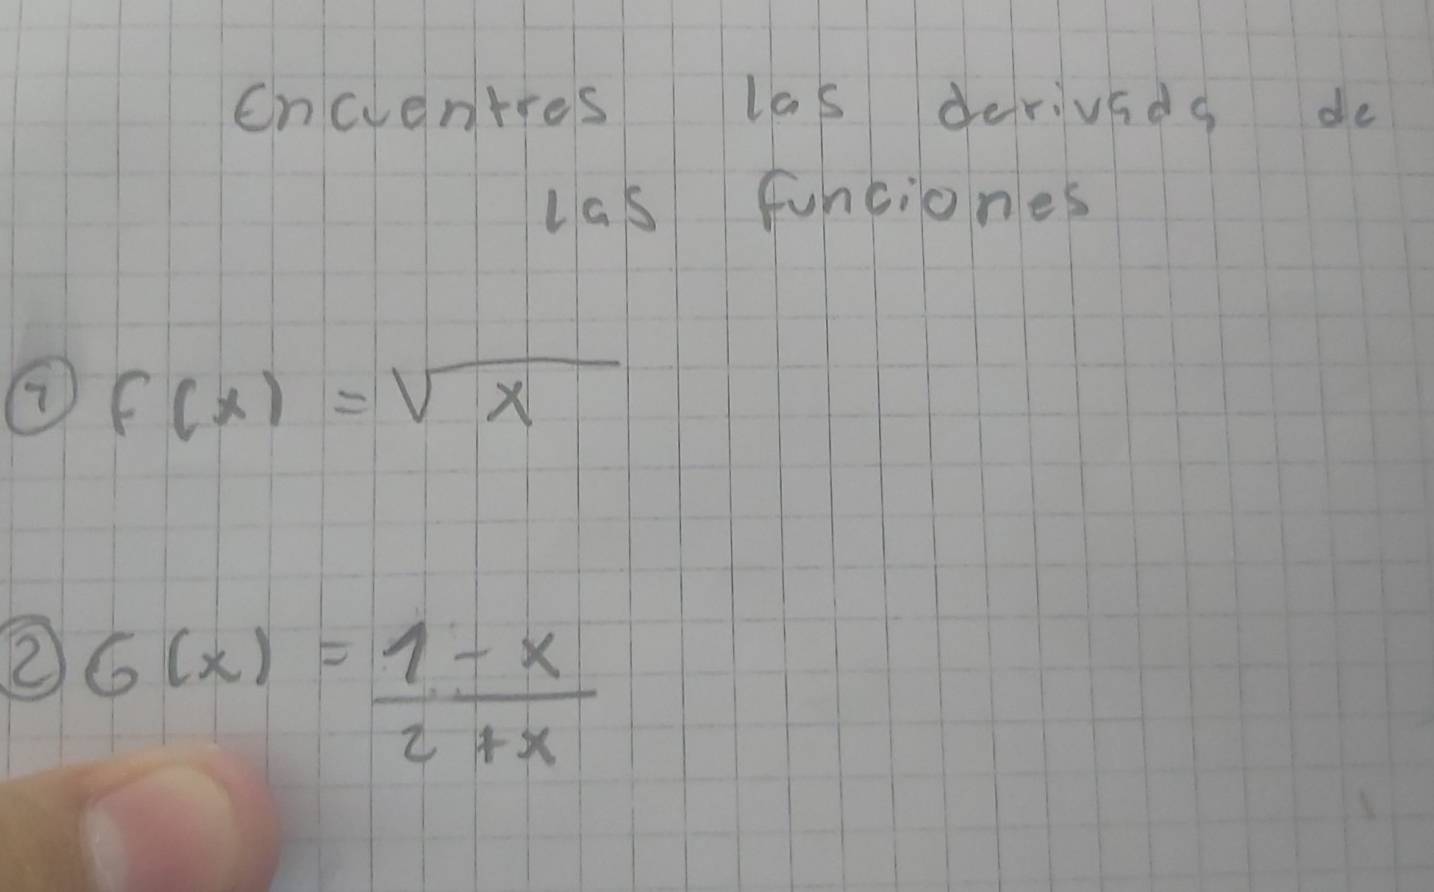 Encuentres las derivada de
Las funciones
① f(x) = √x
② G(x) = 1 - x
2 + x